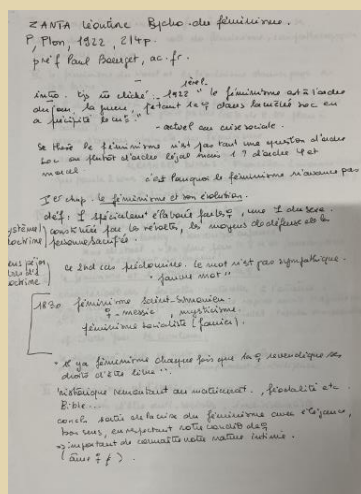 ZANTA Léontine Psycho. du féminisme.
P, Plon, 1922, 214p.
préf Paul Bourget, ac. fr.
intro. cliché 1922 "le féminisme est à l'ordre
du jour, la guerre, jetant la ♀ dans la mêlée soc. en
a précipité
actuel crise sociale.
le féminisme n'est pas tant une question d'ordre
soc. ou plutôt d'ordre légal mais 1 ? d'ordre et
moral.
c'est pourquoi le féminisme n'avance pas
I chap. le féminisme et son évolution.
déf:
constituée par les révoltes, les moyens de défense et les
doctrine
ce 2nd cas prédomine. le mot n'est pas sympathique.
"
1830 féminisme Saint-Simonien.
♀-messie, mysticisme.
féminisme socialiste (Fourier).
"il y a féminisme chaque fois que la ♀ revendique ses
droits d'être libre".
historique remontant au matriarcat, féodalité etc.
Bible...
concl. sortir de la crise du féminisme avec élégance,
bon sens, en respectant notre condit° de ♀
→ important de connaître notre nature intime.
(âme ♀ ≠).